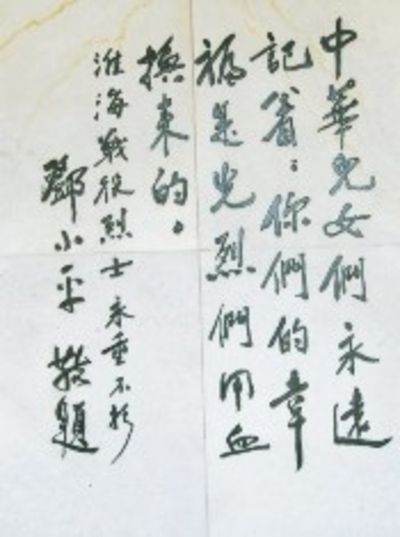 中華兒女們永遠
記着：你們的幸
福是先烈們用血
換来的。
淮海戰役烈士永垂不朽
鄧小平 敬題